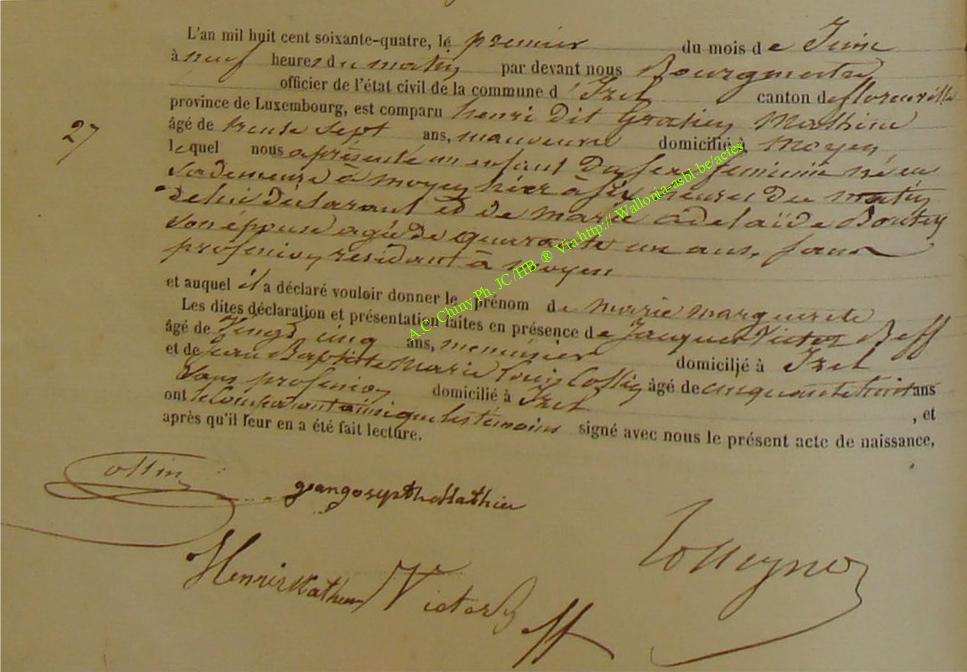 L'an mil huit cent soixante-quatre, le premier du mois de Juin
à neuf heures du matin par devant nous Bourgmestre
officier de l'état civil de la commune d'Izel canton de florenville
province de Luxembourg, est comparu henri dit Mathieu
27
âgé de trente sept ans, manœuvre domicilié à Moyen
lequel nous a présenté un enfant du sexe feminin né en
sa demeure à moyen hier à six heures du matin
de lui déclarant et de marie adelaïde
son épouse agée de quarante un ans, sans
profession résidant à moyen
et auquel il a déclaré vouloir donner le prénom de marie marguerite
Les dites déclaration et présentation faites en présence de Jacques Victor Beff
âgé de Vingt cinq ans, menuisier domicilié à Izel
et de jean Baptiste Marie Louis Collin âgé de cinquante huit ans
sans profession domicilié à Izel , et
ont le comparant ainsi que les témoins signé avec nous le présent acte de naissance,
après qu'il leur en a été fait lecture.
A.C. Chiny Ph. JC /HB. ® Via http://Wallonia-asbl-be/actes
Collin
Mathieu
Henri Mathieu Victor Beff